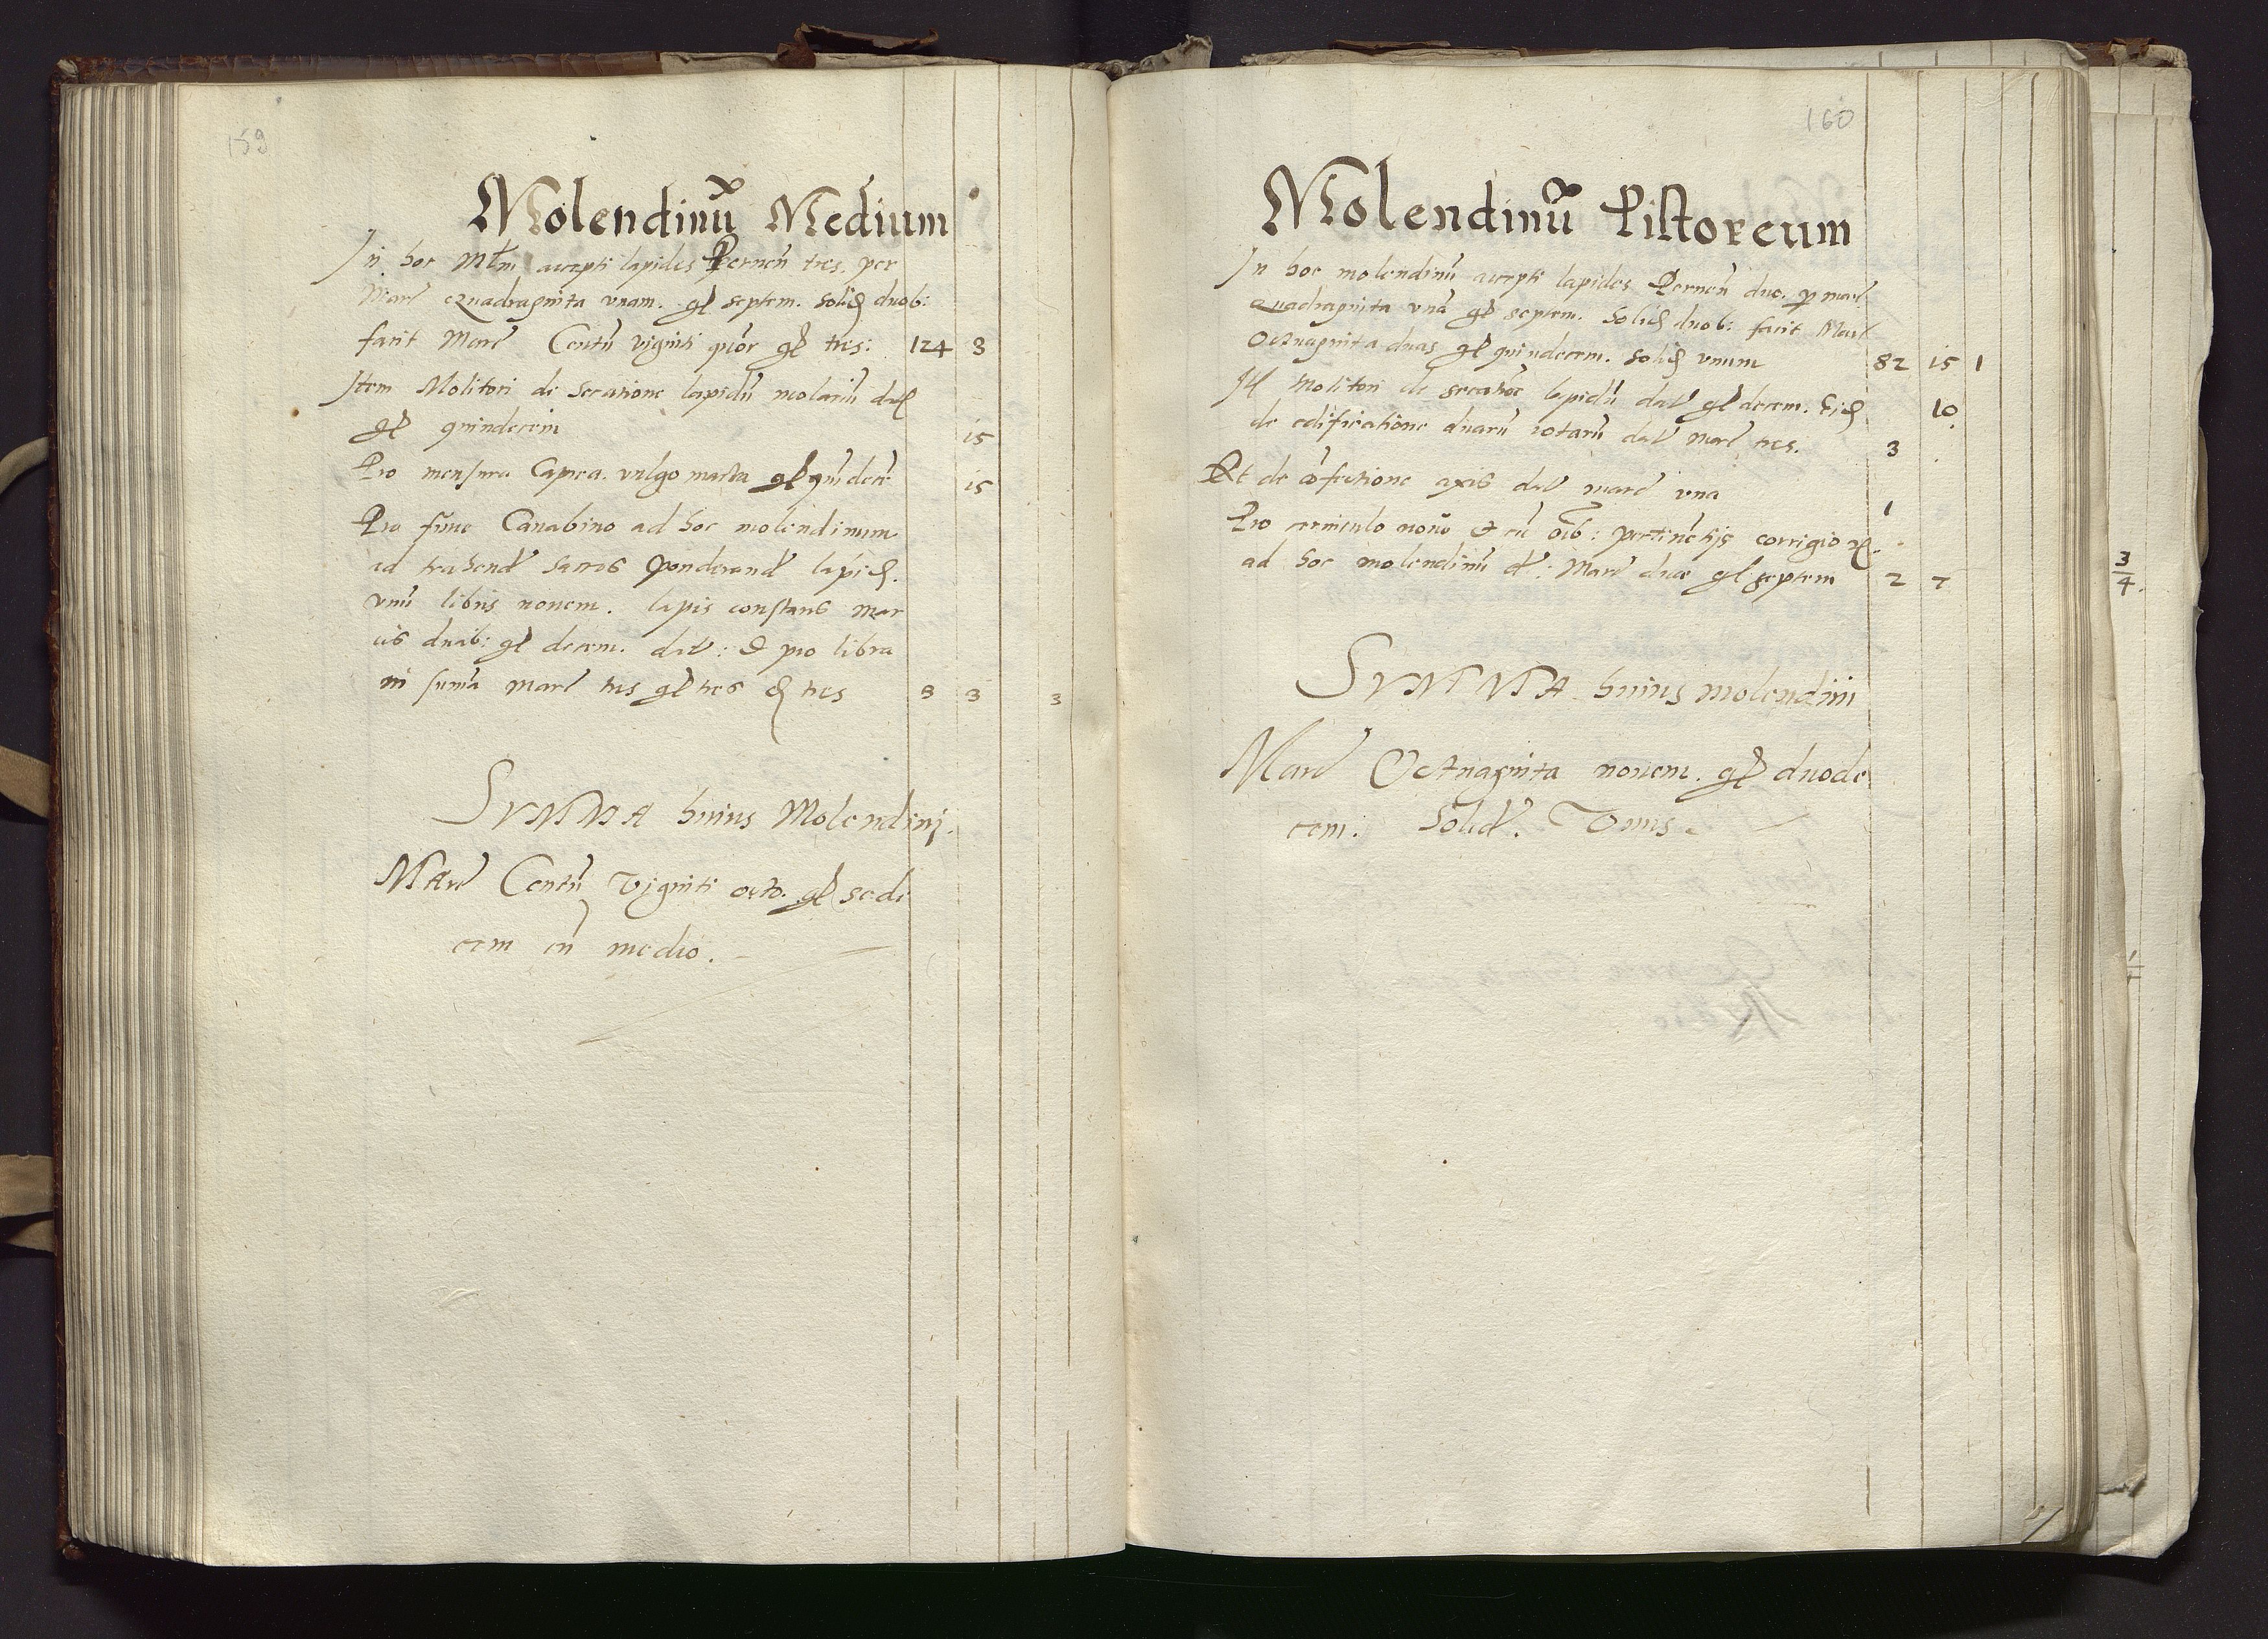 159
Molendinū Medium
In hoc mlm accepti lapides Pernen tres. per
Marc Quadraginta vnam. gl septem. Solid duob:
facit Marc Centū viginti quor gl tres: 124 3
Item Molitori de secatione lapidū molariū dal
gl quindecim 15
Pro mensura Caprea. vulgo marta gl quindecī 15
Pro fune Canabino ad hoc molendinum
ad trahend saccos Ponderand lapid.
vnū libris nonem. lapis constans mar
cis duab: gl decem. dat: & pro libra
in suma marc tres gl tres d tres 3 3 3
SVMMA huius Molendinj.
Marc Centū Viginti octo. gl sede
cem cū medio.
160
Molendinū Pistoreum
In hoc molendinū accepti lapides Pernen duo. p marc
Quadraginta vna gl septem. Solid duob: facit Marc
Octuaginta duas gl quindecem. solid vnum 82 15 1
Itl molitori de secatioe lapidū dat gl decem. Eid 10
de edificatione duarū rotarū dat marc tres. 3
Et de cōfectione axis dat marc vna 1
Pro nouo et cū oīb: pertinētijs corrigio
ad hoc molendinū d: Marc duae gl septem 2 7
SVMMA huius molendini
Marc Octuaginta nonem. gl duode
cem: Solid.
3/4